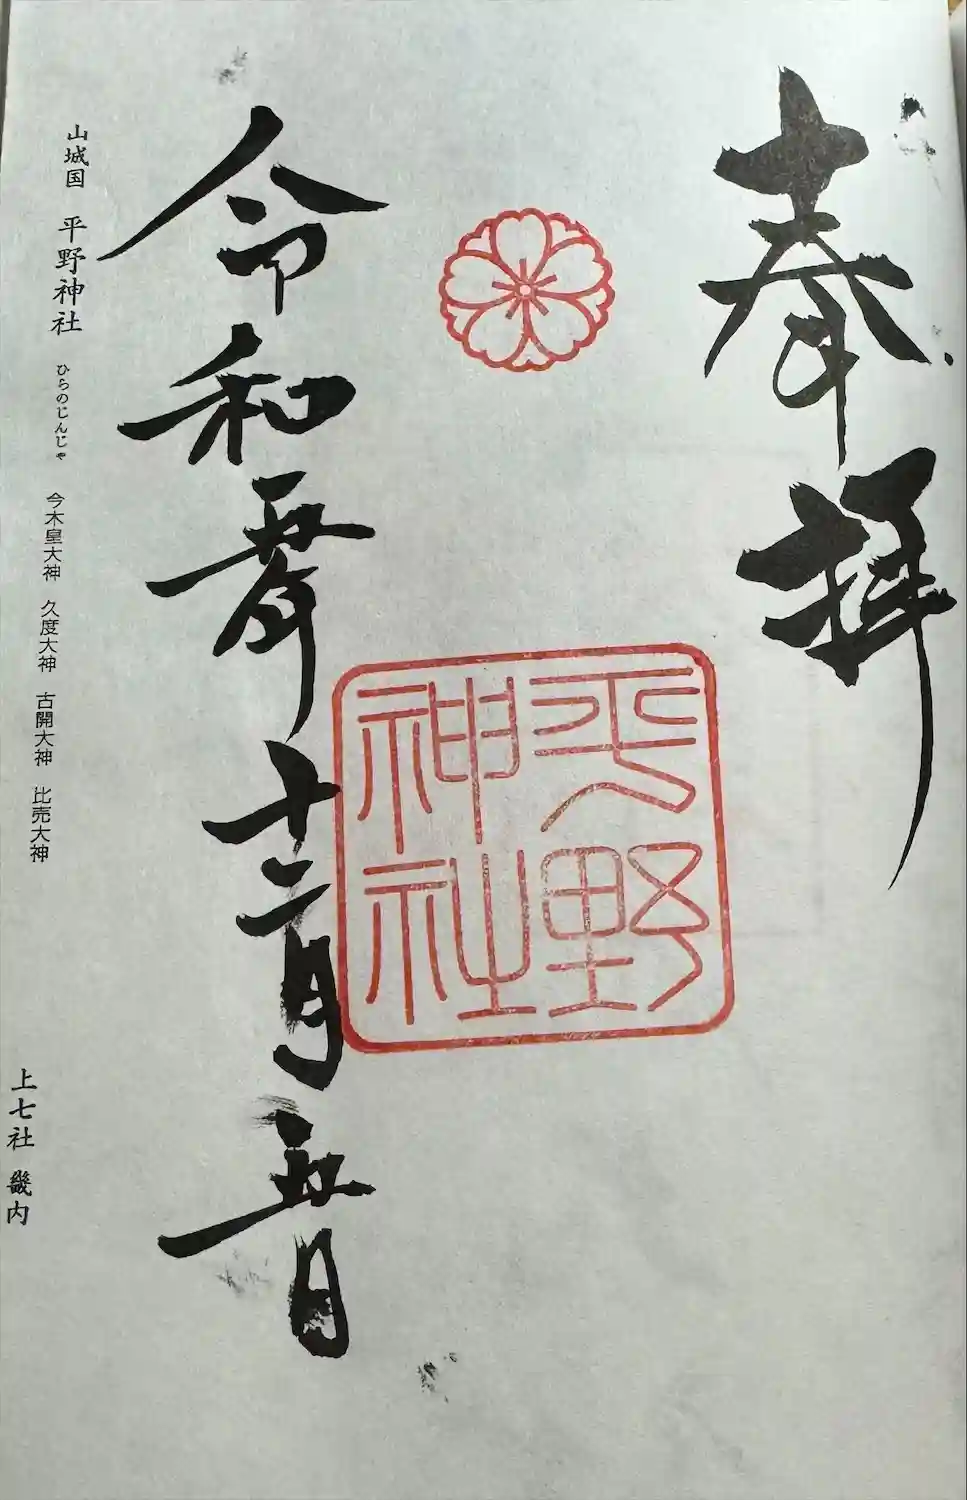 奉拝
平野
神社
令和五年十二月五日
山城国 平野神社 ひらのじんじゃ 今木皇大神 久度大神 古開大神 比売大神
上七社 畿内